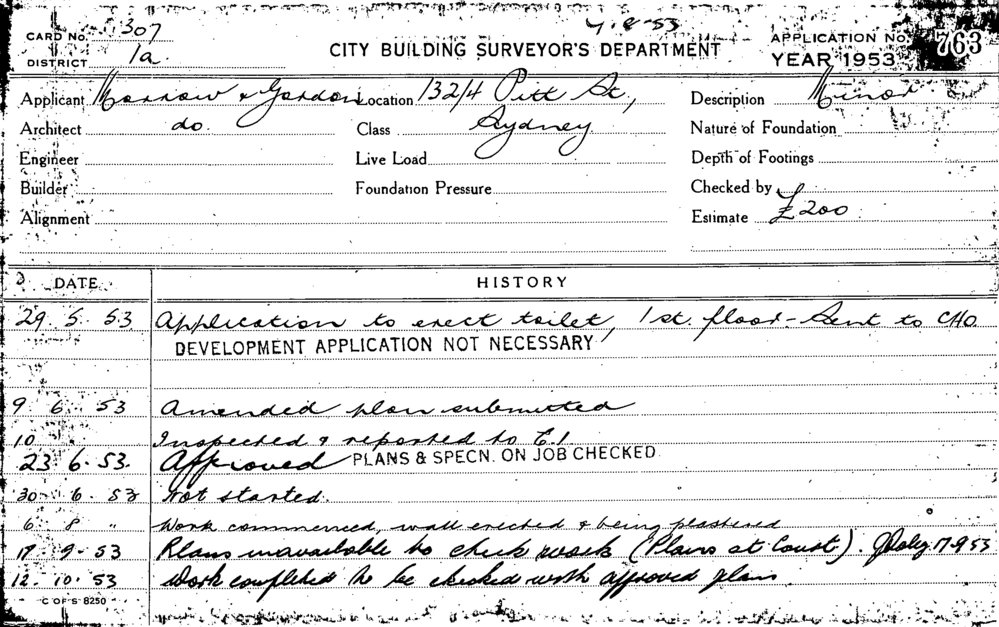 CARD No. 307 4-8-53 APPLICATION No. 763
DISTRICT 1a. CITY BUILDING SURVEYOR'S DEPARTMENT YEAR 1953
Applicant Morrow & Gordon Location 132/4 Pitt St, Description Minor
Architect do. Class Sydney Nature of Foundation
Engineer Live Load Depth of Footings
Builder Foundation Pressure Checked by
Alignment Estimate £200
DATE HISTORY
29. 5. 53 Application to erect toilet, 1st. floor - Sent to CHO
DEVELOPMENT APPLICATION NOT NECESSARY
9. 6. 53 Amended plan submitted
10 Inspected & reported to C.I
23. 6. 53. Approved PLANS & SPECN. ON JOB CHECKED
30 6. 53 Not started.
6 8 " Work commenced, wall erected & being plastered
17-9-53 Plans unavailable to check work (Plans at Court). 17-9-53
12. 10. 53 Work completed to be checked with approved plans.
C OF S 8250